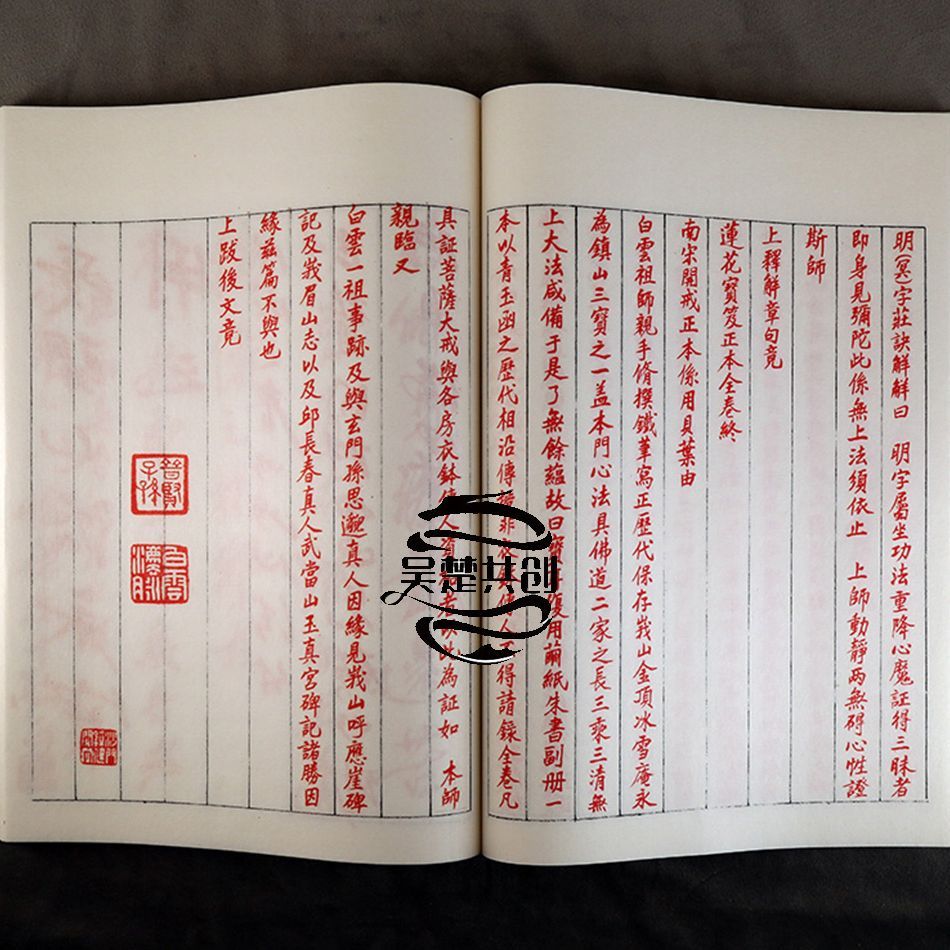 明(冥)字莊訣解解曰 明字屬坐功法重降心魔証得三昧者
即身見彌陀此係無上法須依止 上師動靜兩無碍心性證
斯師
上釋解章句竟
蓮花寶笈正本全卷終
南宋開戒正本係用貝葉由
白雲祖師親手脩撰鐵筆寫正歷代保存峩山金頂冰雪庵永
為鎮山三寶之一盖本門心法具佛道二家之長三乘三清無
上大法咸備于是了無餘蘊故曰復用繭紙朱書副册一
本以青玉函之歷代相沿傳非傳人不得請錄全卷凡
具証菩薩大戒與各房衣鉢人此為証如 本師
親臨又
白雲一祖事跡及與玄門孫思邈真人因緣見峩山呼應崖碑
記及峩眉山志以及邱長春真人武當山玉真宮碑記諸勝因
緣茲篇不與也
上跋後文竟
普賢子孫
白雲
沙門
吴楚共创